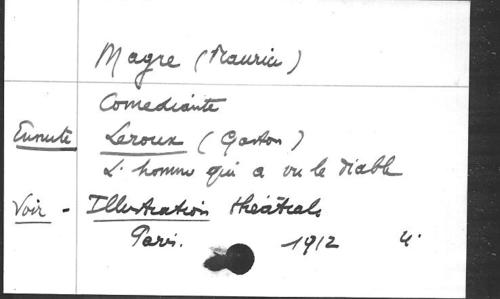 Magre (Maurice)
Comediante
Ensuite Leroux (Gaston)
L'homme qui a vu le diable
Voir - Illustration théâtrale
Paris. 1912 4°